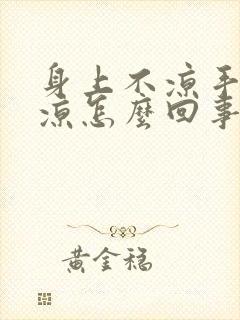 身上不凉手
凉怎麼回事
黄金稳